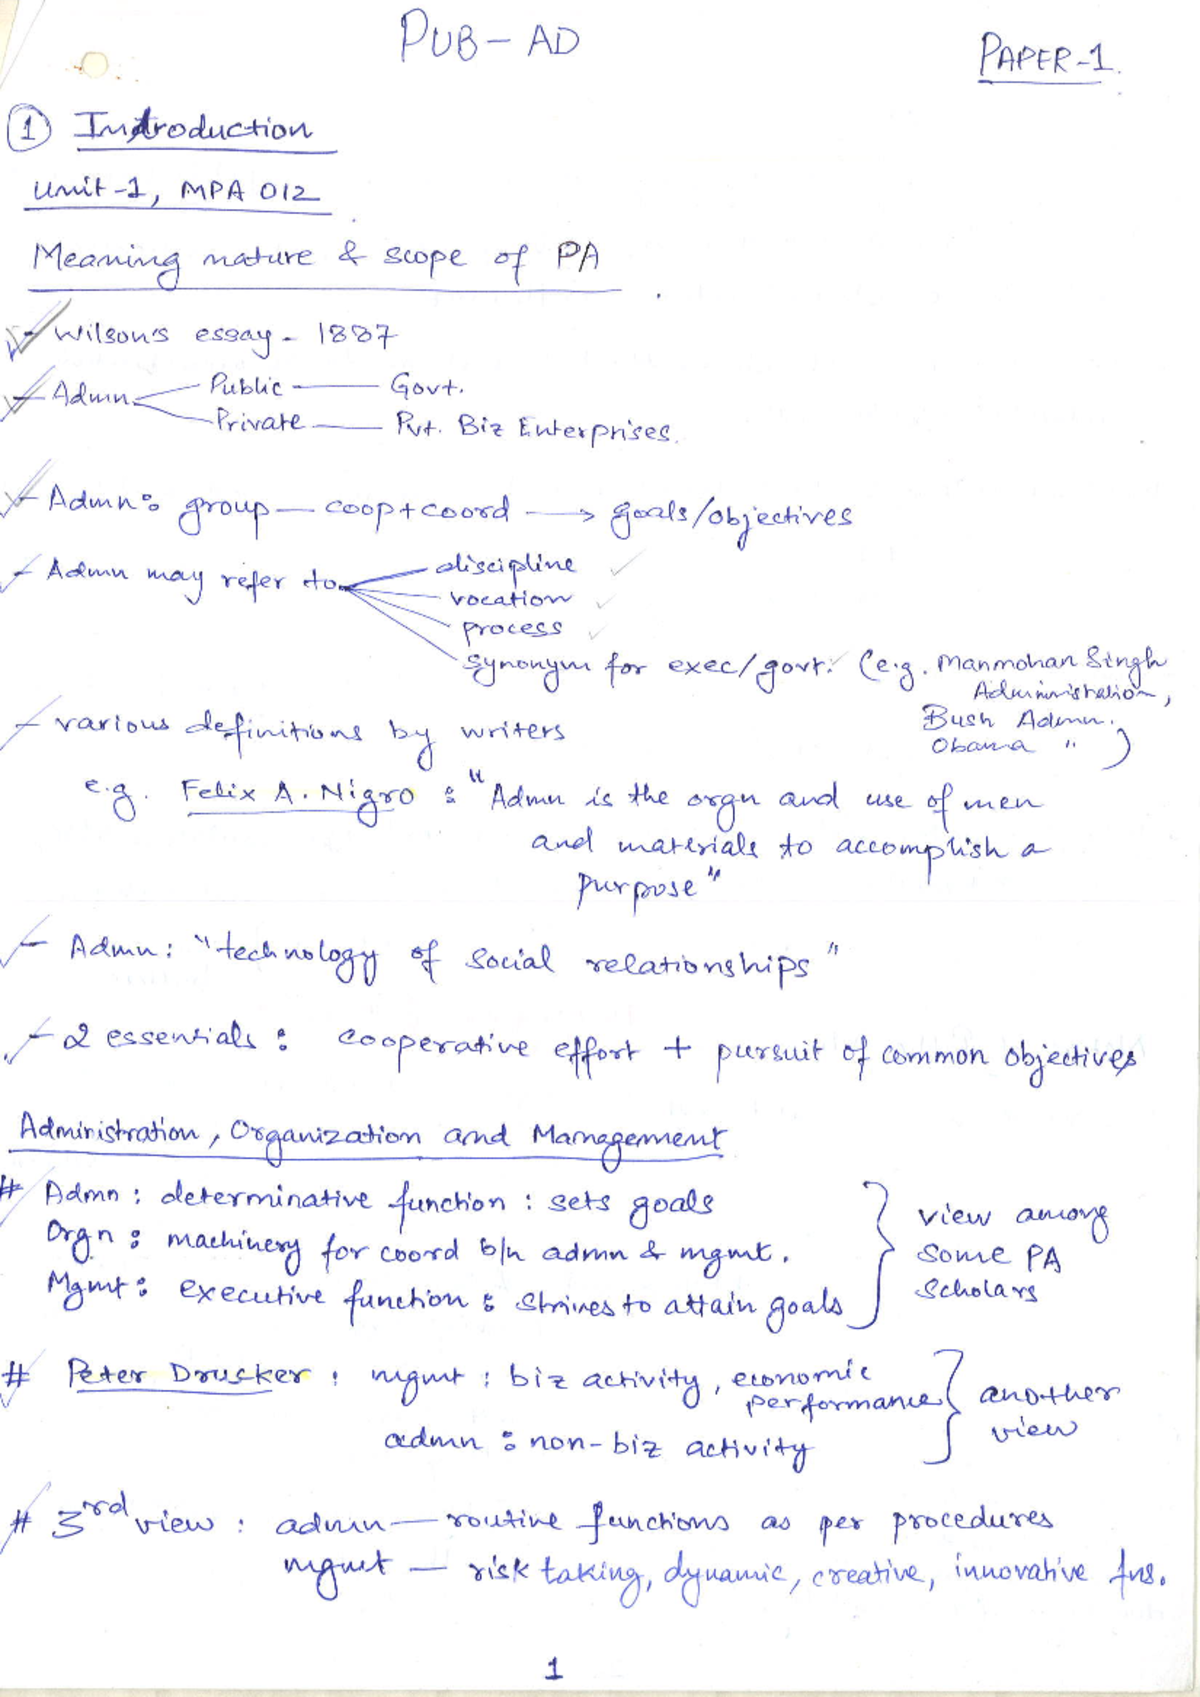 PUB-AD
PAPER-1.
① Introduction
Unit-1, MPA 012
Meaning nature & scope of PA
- Wilson's essay - 1887
- Admn. Public — Govt.
Private — Pvt. Biz Enterprises.
- Admn: group — coop+coord → goals/objectives
- Admn may refer to discipline ✓
vocation ✓
process ✓
synonym for exec/govt. ✓ (e.g. Manmohan Singh
Administration,
Bush Admn.
Obama " )
- various definitions by writers
e.g. Felix A. Nigro : "Admn is the orgn and use of men
and materials to accomplish a
purpose"
- Admn: "technology of social relationships"
- 2 essentials: cooperative effort + pursuit of common objectives
Administration, Organization and Management
# Admn : determinative function : sets goals
Orgn : machinery for coord b/n admn & mgmt.
Mgmt : executive function : strives to attain goals
} view among
some PA
scholars
# Peter Drucker : mgmt : biz activity, economic
performance
admn : non-biz activity
} another
view
# 3rd view : admn — routine functions as per procedures
mgmt — risk taking, dynamic, creative, innovative fns.
1